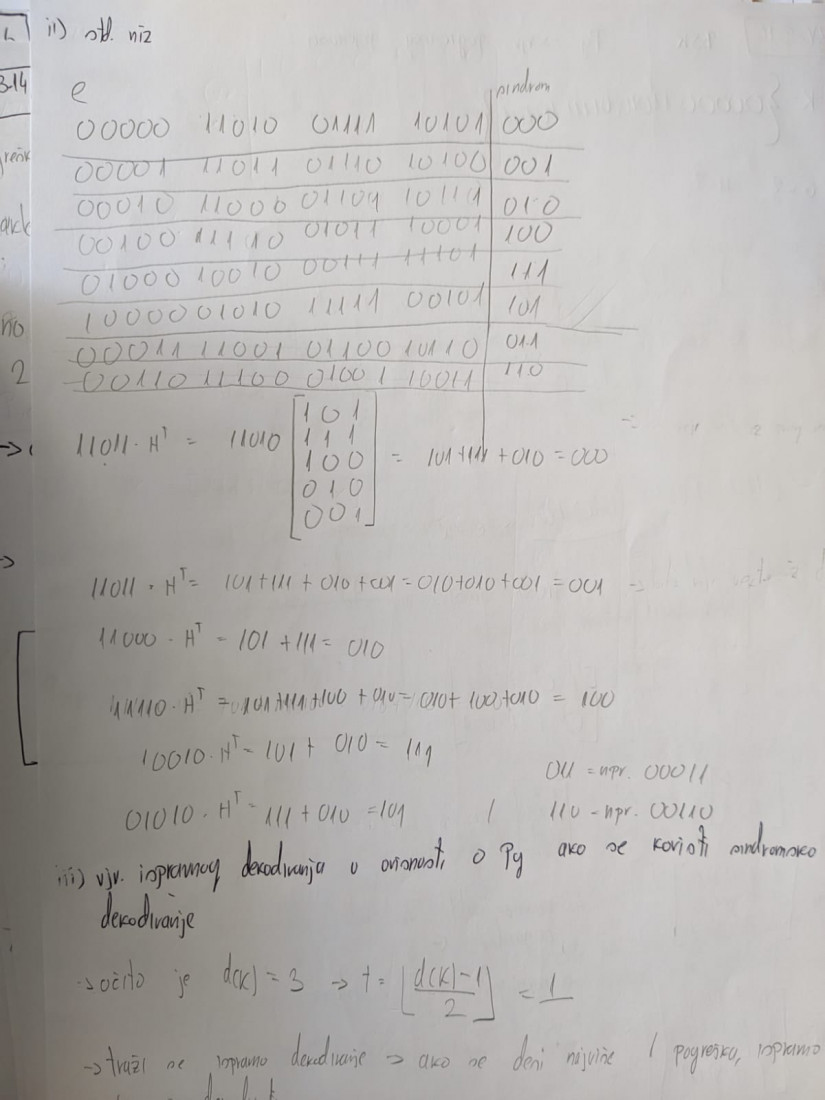 ii) std. niz
3.14
e sindrom
00000 11010 01111 10101 000
00001 11011 01110 10100 001
00010 11000 01101 10111 010
00100 11110 01011 10001 100
01000 10010 00111 11101 111
10000 01010 11111 00101 101
00011 11001 01100 10110 011
00110 11100 01001 10011 110
no
2
11011 · H^T = 11010 [101 111 100 010 001] = 101+111+010 = 000
11011 · H^T = 101+111+010+001=010+010+001 =001
11000 · H^T = 101+111= 010
11110 · H^T = 101+111+100+010=010+100+010 = 100
10010 · H^T = 101+ 010= 111
011 = npr. 00011
01010 · H^T = 111+010 =101 110 - npr. 00110
iii) vjr. ispravnog dekodiranja u ovisnosti o Pg ako se koristi sindromsko
dekodiranje
→ očito je d(K) = 3 → t = ⌊(d(K)-1)/2⌋ = 1
→ traži se ispravno dekodiranje → ako se desi najviše 1 pogreška, ispravno